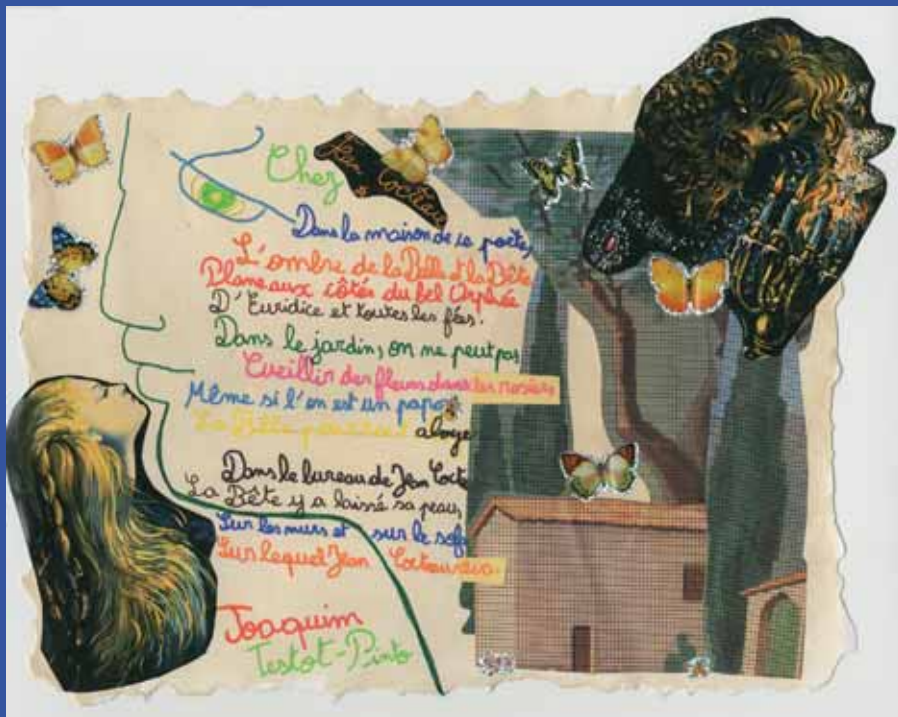 Chez Jean Cocteau
Dans la maison de ce poète,
L'ombre de la Belle et la Bête
Plane aux côtés du bel Orphée
D'Euridice et toutes les fées.
Dans le jardin, on ne peut pas
Cueillir des fleurs dans les rosiers
Même si l'on est un papa
La Bête
aboye
Dans le bureau de Jean Cocte
La Bête y a laissé sa peau,
Sur les murs et sur le sofa
Sur lequel Jean Cocteau
Joaquim
Testot-Pinto